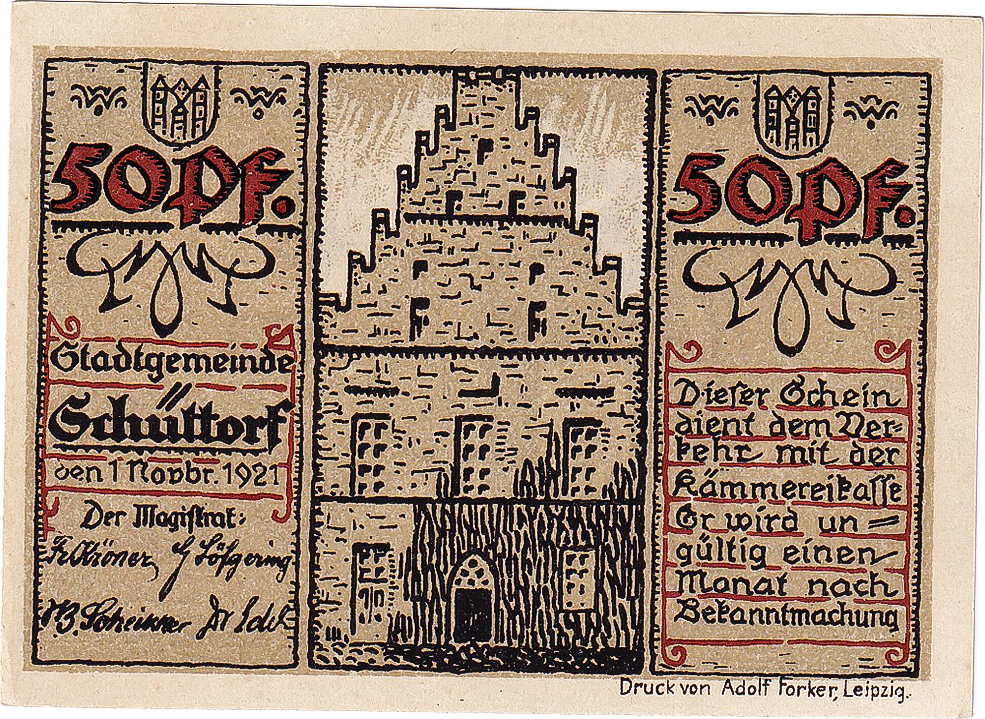 50 Pf.
Stadtgemeinde
Schüttorf
den 1 Novbr. 1921
Der Magistrat:
50 Pf.
Dieser Schein
dient dem Ver=
kehr mit der
Kämmereikasse
Er wird un=
gültig einen
Monat nach
Bekanntmachung
Druck von Adolf Forker, Leipzig.